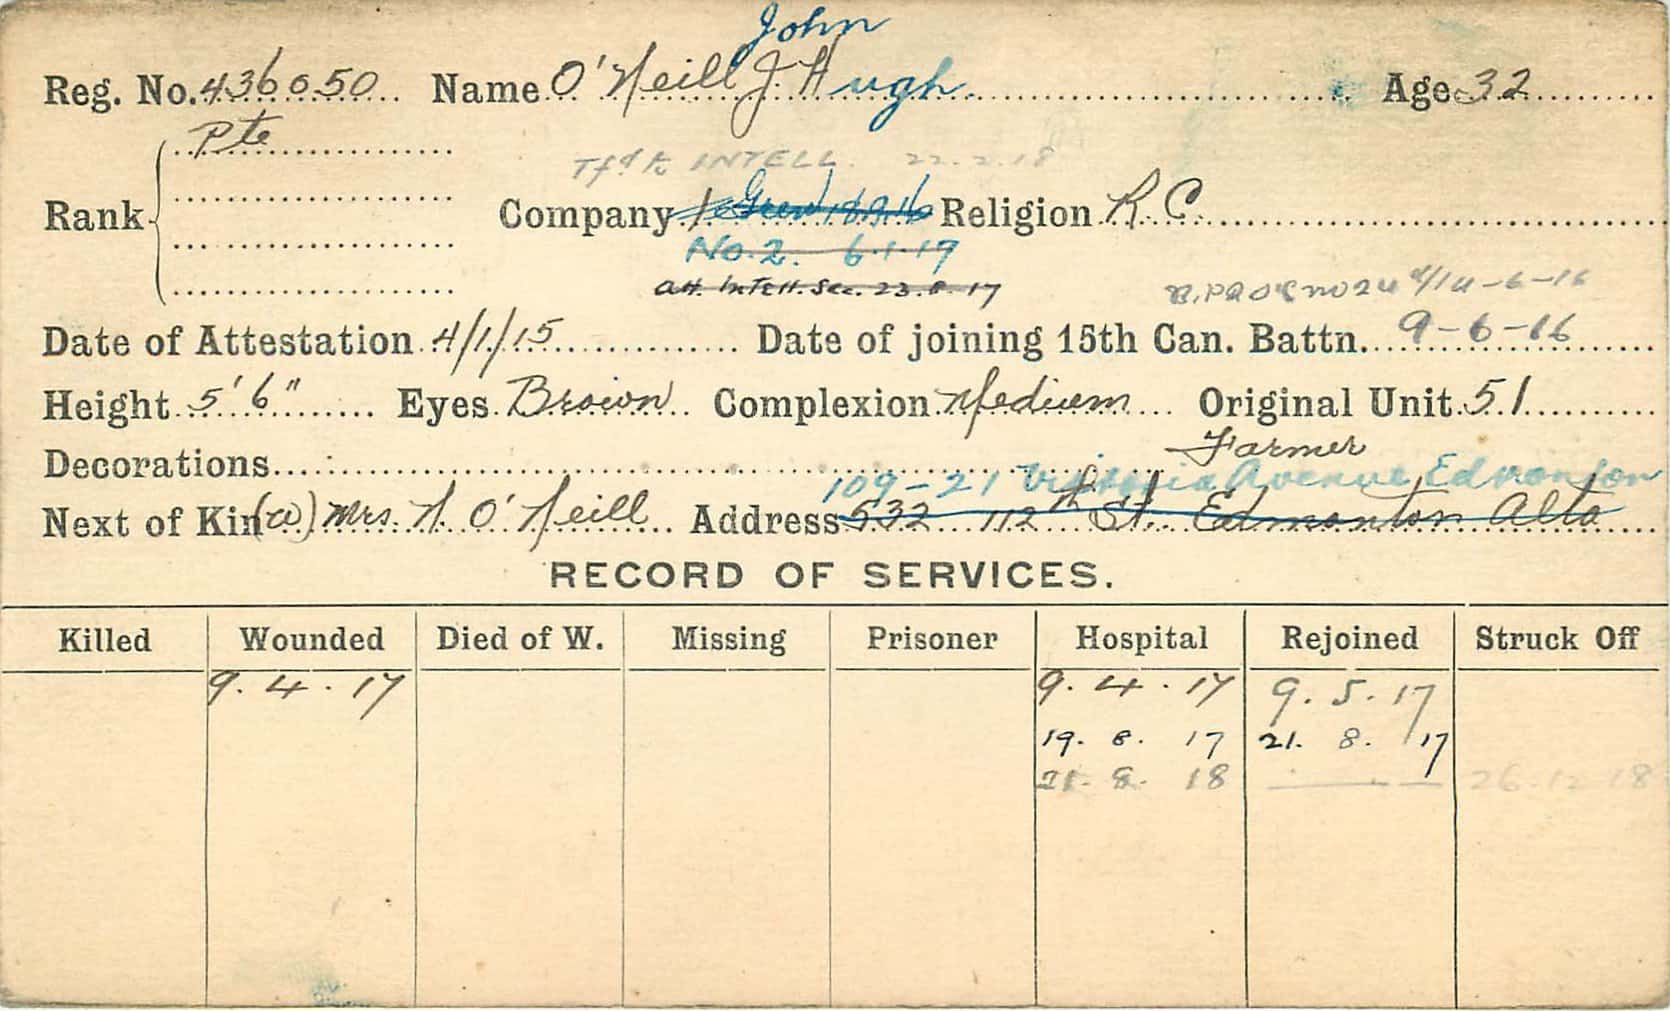 John
Reg. No. 436050 Name O'Neill J Hugh. Age 32
Pte
Tf'd to INTELL. 22.2.18
Rank Company 1 18.9.16 Religion R.C.
No. 2. 6.1.17
att. Intell. Sec. 23.8.17 14-6-16
Date of Attestation 4/1/15 Date of joining 15th Can. Battn. 9-6-16
Height 5' 6" Eyes Brown Complexion Medium Original Unit 51
Farmer
Decorations
109-21 Victoria Avenue Edmonton
Next of Kin (w) Mrs. N. O'Neill Address 532 112th St. Edmonton Alta
RECORD OF SERVICES.
Killed Wounded Died of W. Missing Prisoner Hospital Rejoined Struck Off
9. 4. 17 9. 4. 17 9. 5. 17
19. 8. 17 21. 8. 17
21. 8. 18 26.12.18